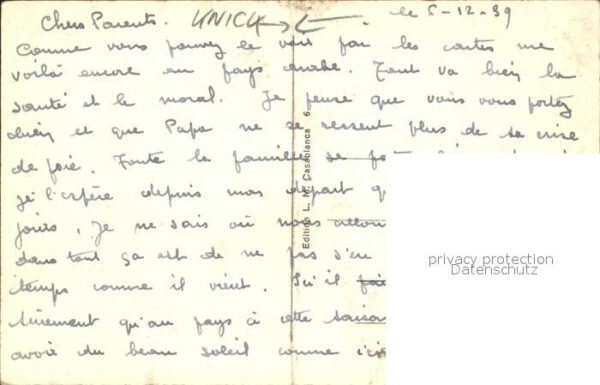 Chers Parents. UNICU le 5-12-39
Comme vous pouvez le voir par les cartes me
voilà encore au pays arabe. Tout va bien la
santé et le moral. Je pense que vous vous portez
bien et que Papa ne se ressent plus de sa crise
de foie. Toute la famille se
je l'espère depuis mon départ
jours. Je ne sais où nous allon
dans tout ça est de ne pas s'en
temps comme il vient. Ici il
tinement qu'au pays à cette saison
avoir du beau soleil comme ici
Edition L. M. Casablanca 6
privacy protection
Datenschutz